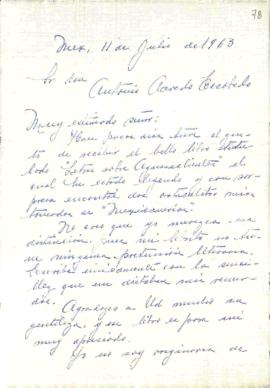 78
Mex, 11 de Julio de 1963.
Sr. don
Antonio Acevedo Escobedo
Muy estimado señor:
Hace pocos días tuve el gus-
to de recibir el bello libro titu-
lado "Letras sobre Aguascalientes" el
cual he estado leyendo y con sor-
presa encontré dos articulitos míos
tomados de
No creo que yo merezca esa
distinción, pues mi librito no tie-
ne ninguna pretensión literaria,
Escribí únicamente con la senci-
llez que me dictaban mis recuer-
dos.
Agradezco a Ud mucho su
gentileza, y su libro es para mí
muy apreciado.
Yo no soy originaria de